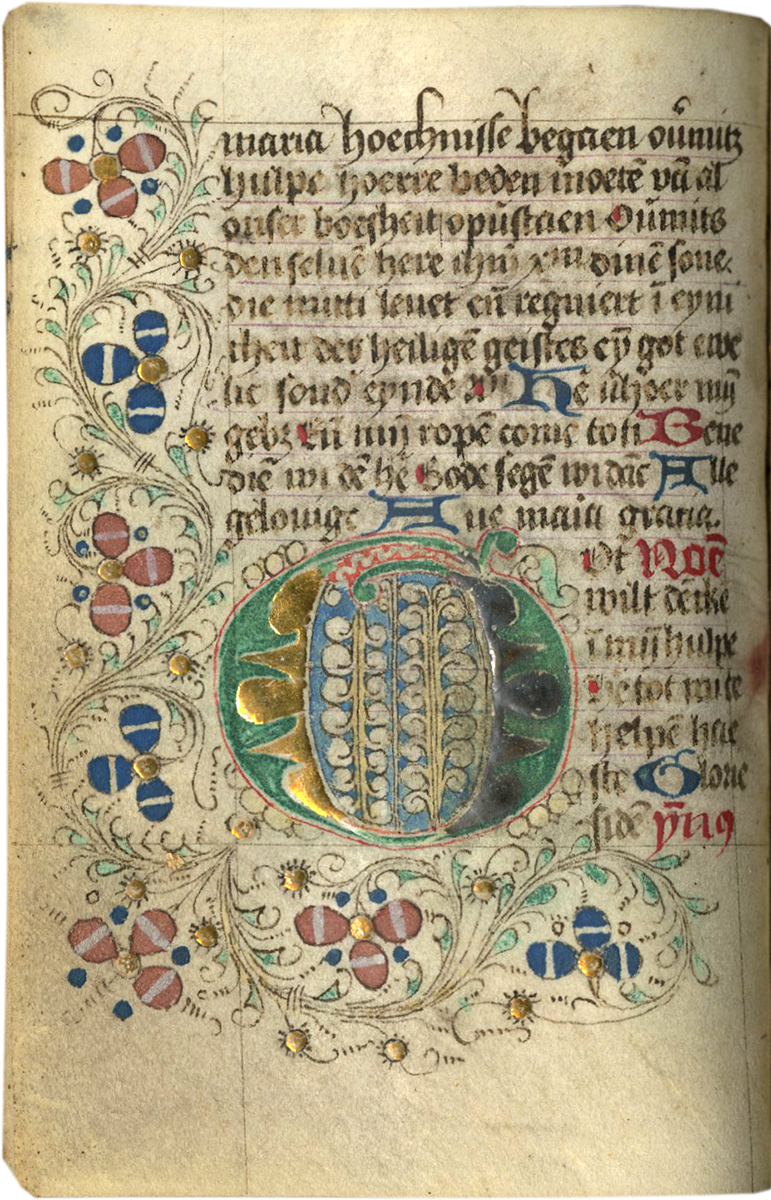 maria hoechnisse begaen ou̅mitz
hulpe hoerre beden moetē vā al
onser boesheit opūstaen Oūmits
den seluē here ihm̄ xp̄m dinē sone.
die mitti leuet eñ regniert ī eyni
theit des heiligē geistes eȳ got ewe
lic sond' eynde He ūhoer mȳ
gebz Eñ mȳ ropē come to ti Bene
diē wi dē hē Gode segē wi dāc Alle
gelouige Aue maia gracia.
Ot Noē
wilt dēcke
ī mȳ hulpe
He tot mi te
helpē hae
ste Glorie
sidē ȳm9